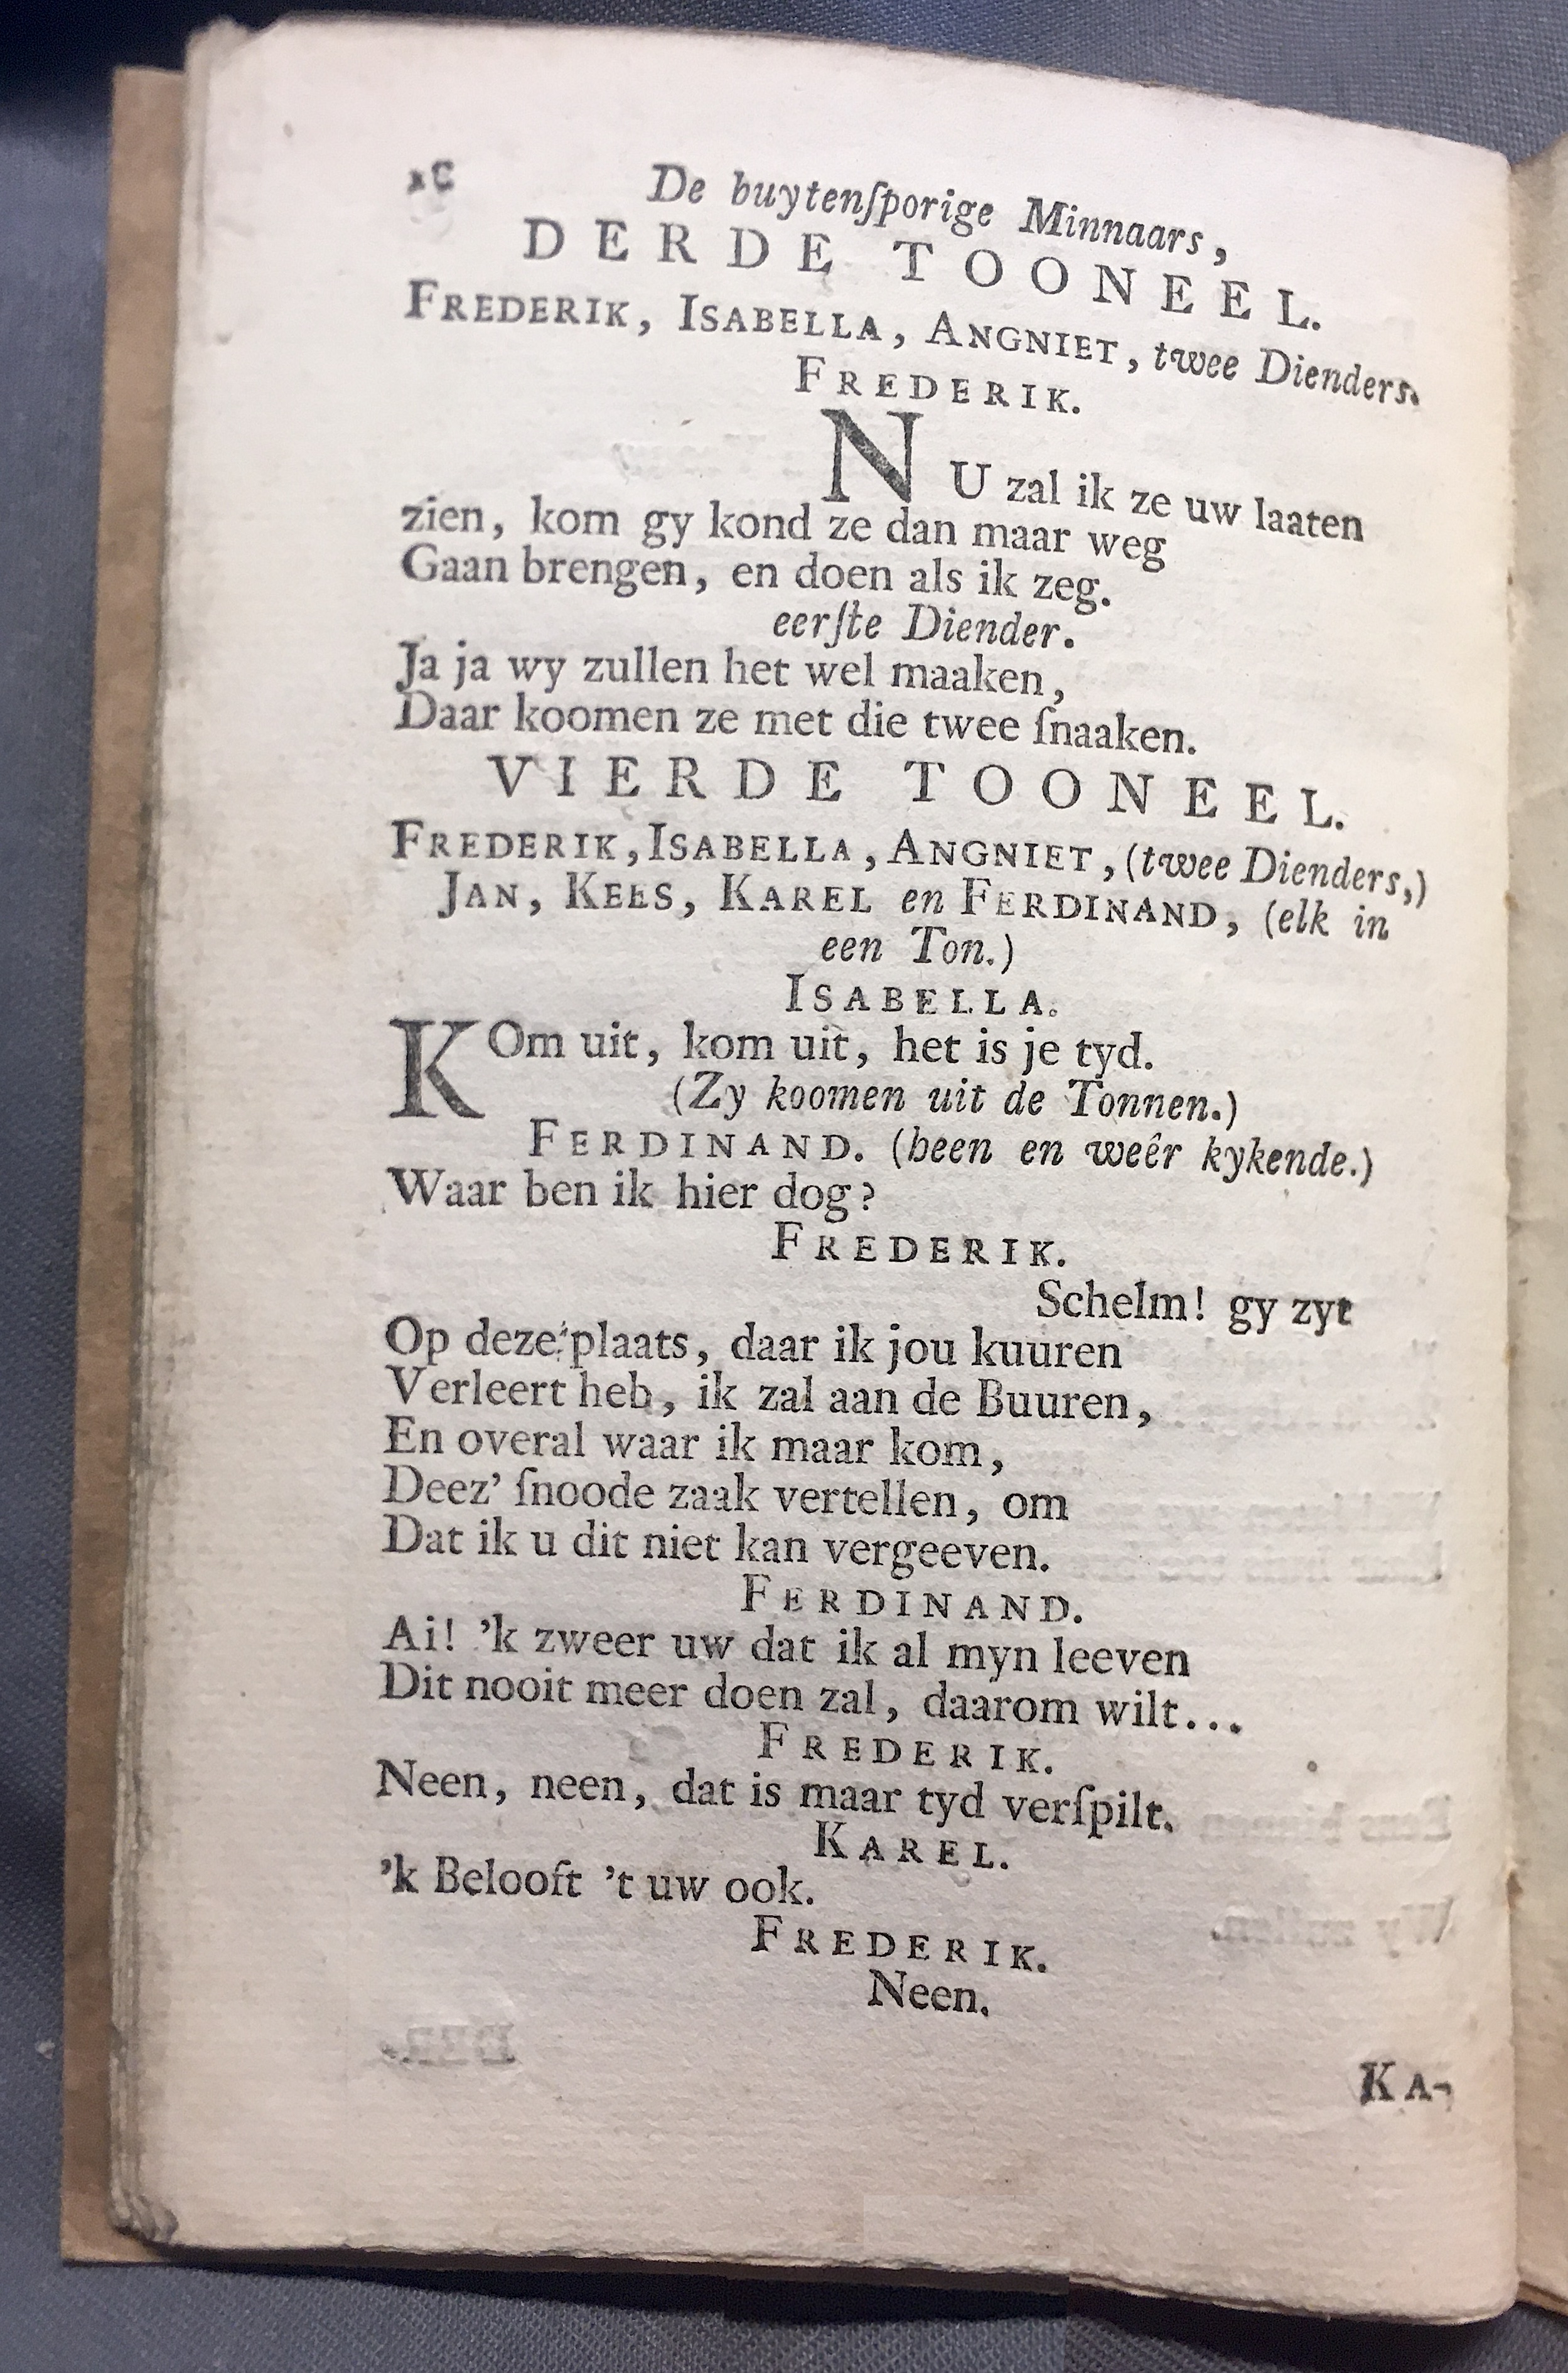 De buytenſporige Minnaars,
DERDE TOONEEL.
FREDERIK, ISABELLA, ANGNIET, twee Dienders.
FREDERIK.
NU zal ik ze uw laaten
zien, kom gy kond ze dan maar weg
Gaan brengen, en doen als ik zeg.
eerſte Diender.
Ja ja wy zullen het wel maaken,
Daar koomen ze met die twee ſnaaken.
VIERDE TOONEEL.
FREDERIK, ISABELLA, ANGNIET, (twee Dienders,)
JAN, KEES, KAREL en FERDINAND, (elk in
een Ton.)
ISABELLA.
KOm uit, kom uit, het is je tyd.
(Zy koomen uit de Tonnen.)
FERDINAND. (heen en weêr kykende.)
Waar ben ik hier dog?
FREDERIK.
Schelm! gy zyt
Op deze plaats, daar ik jou kuuren
Verleert heb, ik zal aan de Buuren,
En overal waar ik maar kom,
Deez' ſnoode zaak vertellen, om
Dat ik u dit niet kan vergeeven.
FERDINAND.
Ai! 'k zweer uw dat ik al myn leeven
Dit nooit meer doen zal, daarom wilt...
FREDERIK.
Neen, neen, dat is maar tyd verſpilt.
KAREL.
'k Belooft 't uw ook.
FREDERIK.
Neen.
KA-